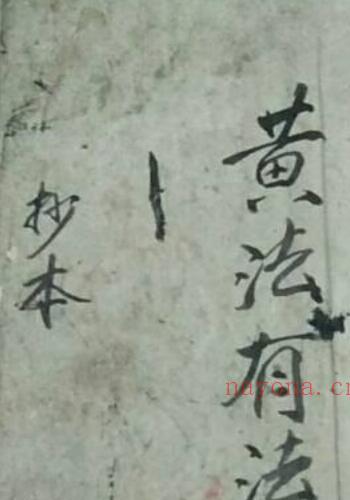 黄法有法
抄本
nayona.cn